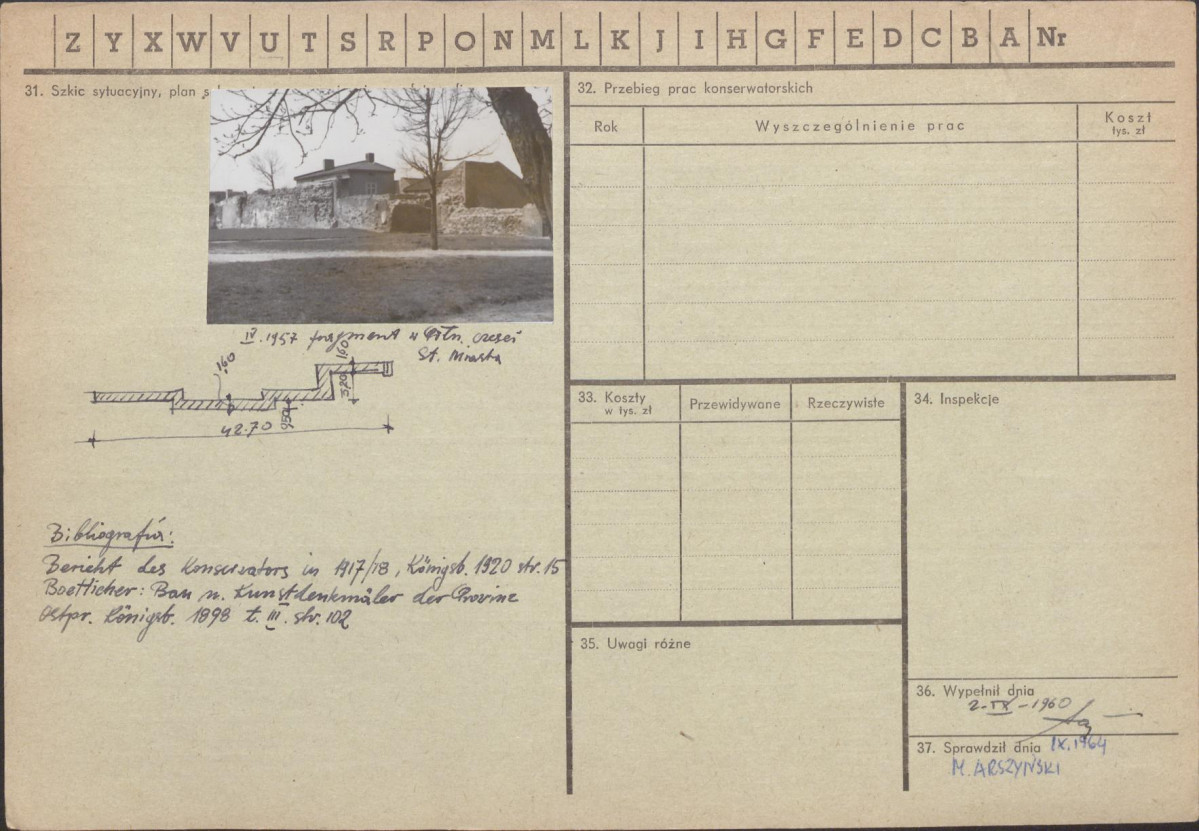 Z Y X W V U T S R P O N M L K J I H G F E D C B A Nr
31. Szkic sytuacyjny, plan s
IV. 1957 fragment w Płn. części
St. Miasta
160
160
42.70
Bibliografia:
Bericht des Konservators in 1917/18, Königsb. 1920 str. 15
Boetticher: Bau u. Kunstdenkmäler der Provinz
Ostpr. Königsb. 1898 t. III. str. 102
32. Przebieg prac konserwatorskich
Rok
Wyszczególnienie prac
Koszt
tys. zł
33. Koszty
w tys. zł
Przewidywane
Rzeczywiste
34. Inspekcje
35. Uwagi różne
36. Wypełnił dnia
2-IX-1960
37. Sprawdził dnia IX.1964
M. ARSZYŃSKI